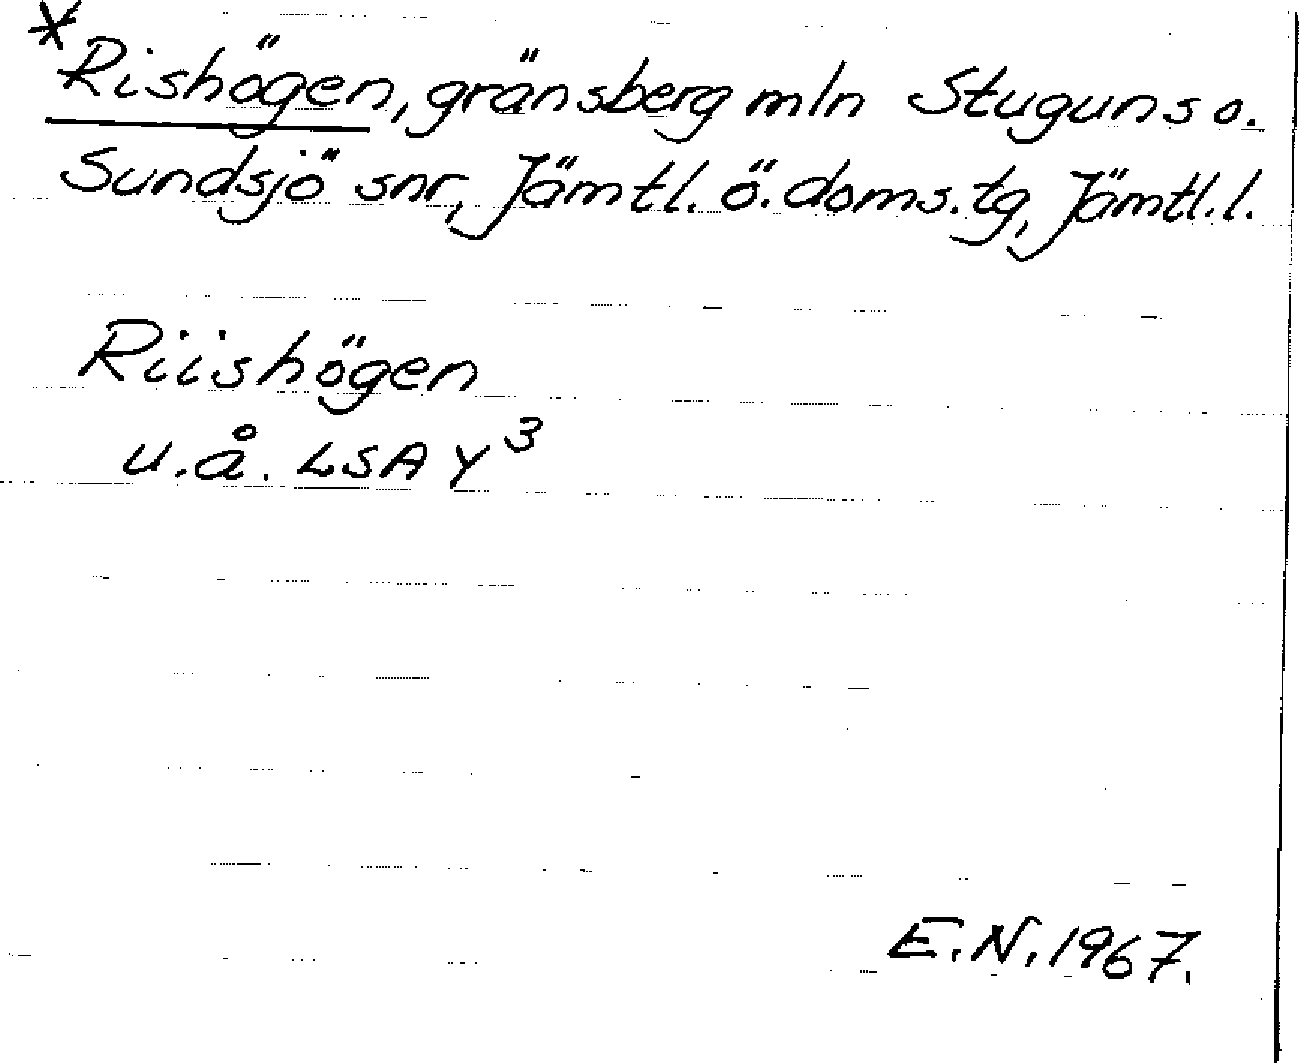 *Rishögen, gränsberg mln Stuguns o.
Sundsjö snr, Jämtl. ö. doms. tg, Jämtl. l.
Riishögen
u. å. LSA Y³
E. N. 1967.